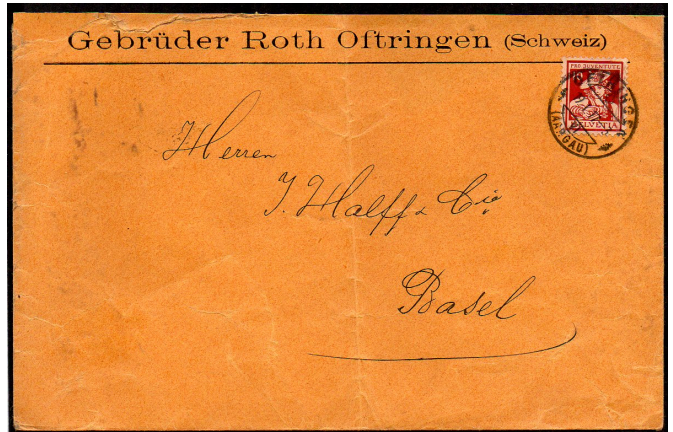 Gebrüder Roth Oftringen (Schweiz)
PRO JUVENTUTE
HELVETIA
OFTRINGEN
(AARGAU)
Herren
J. Halff & Cie
Basel